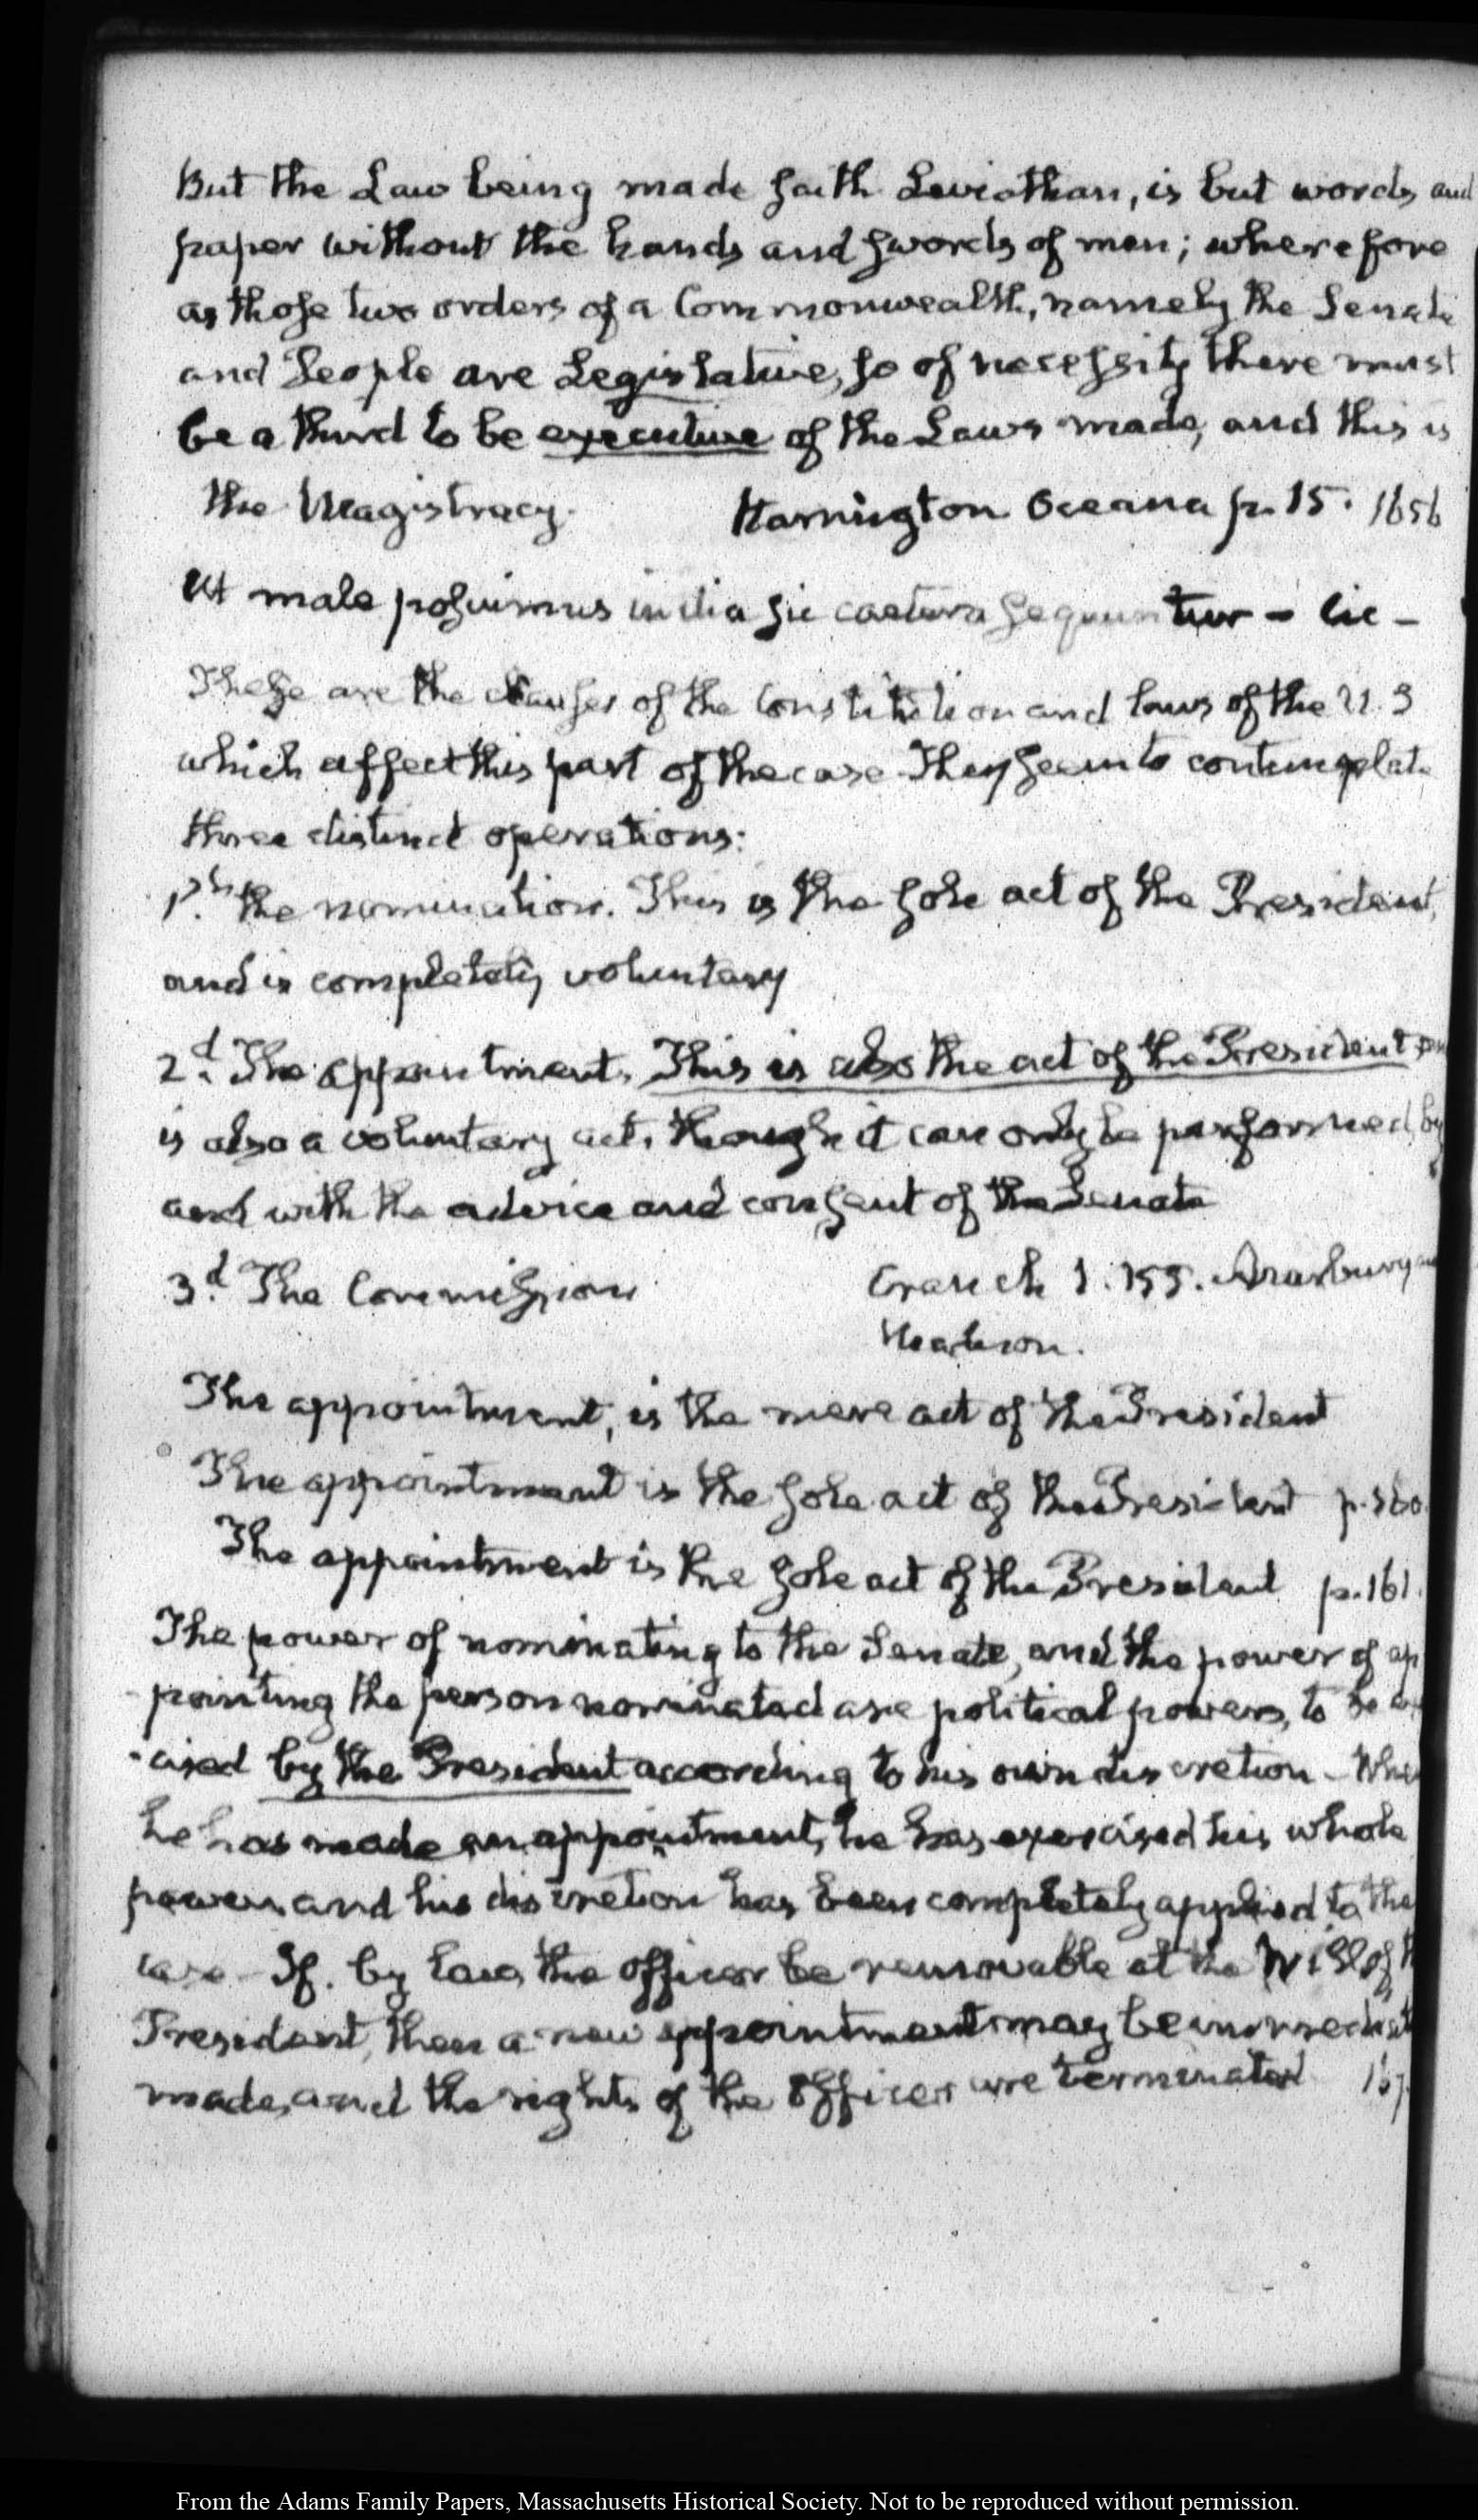 But the Law being made saith Leviathan, is but words and
paper without the hands and swords of men; wherefore
as those two orders of a Commonwealth, namely the Senate
and People are Legislative, so of necessity there must
be a third to be executive of the Laws made, and this is
the Magistracy. Harrington Oceana p. 15. 1656
Ut male posuimus initia sic caetera sequuntur - Cic -
These are the clauses of the Constitution and laws of the U.S
which affect this part of the case They seem to contemplate
three distinct operations:
the nomination. This is the sole act of the President,
and is completely voluntary
2.d The appointment. This is also the act of the President and
is also a voluntary act, though it can only be performed by
and with the advice and consent of the Senate
3.d The Commission Cranch 1. 155. Marbury and
Madison.
The appointment, is the mere act of the President
The appointment is the sole act of the President p. 160.
The appointment is the sole act of the President p. 161.
The power of nominating to the Senate, and the power of ap
pointing the person nominated are political powers, to be
cised by the President according to his own discretion - When
he has made an appointment, he has exercised his whole
power, and his discretion has been completely applied to the
case - If. by law, the officer be removable at the Will of
President, then a new appointment may be immediat
made, and the rights of the Officer are terminated
From the Adams Family Papers, Massachusetts Historical Society. Not to be reproduced without permission.